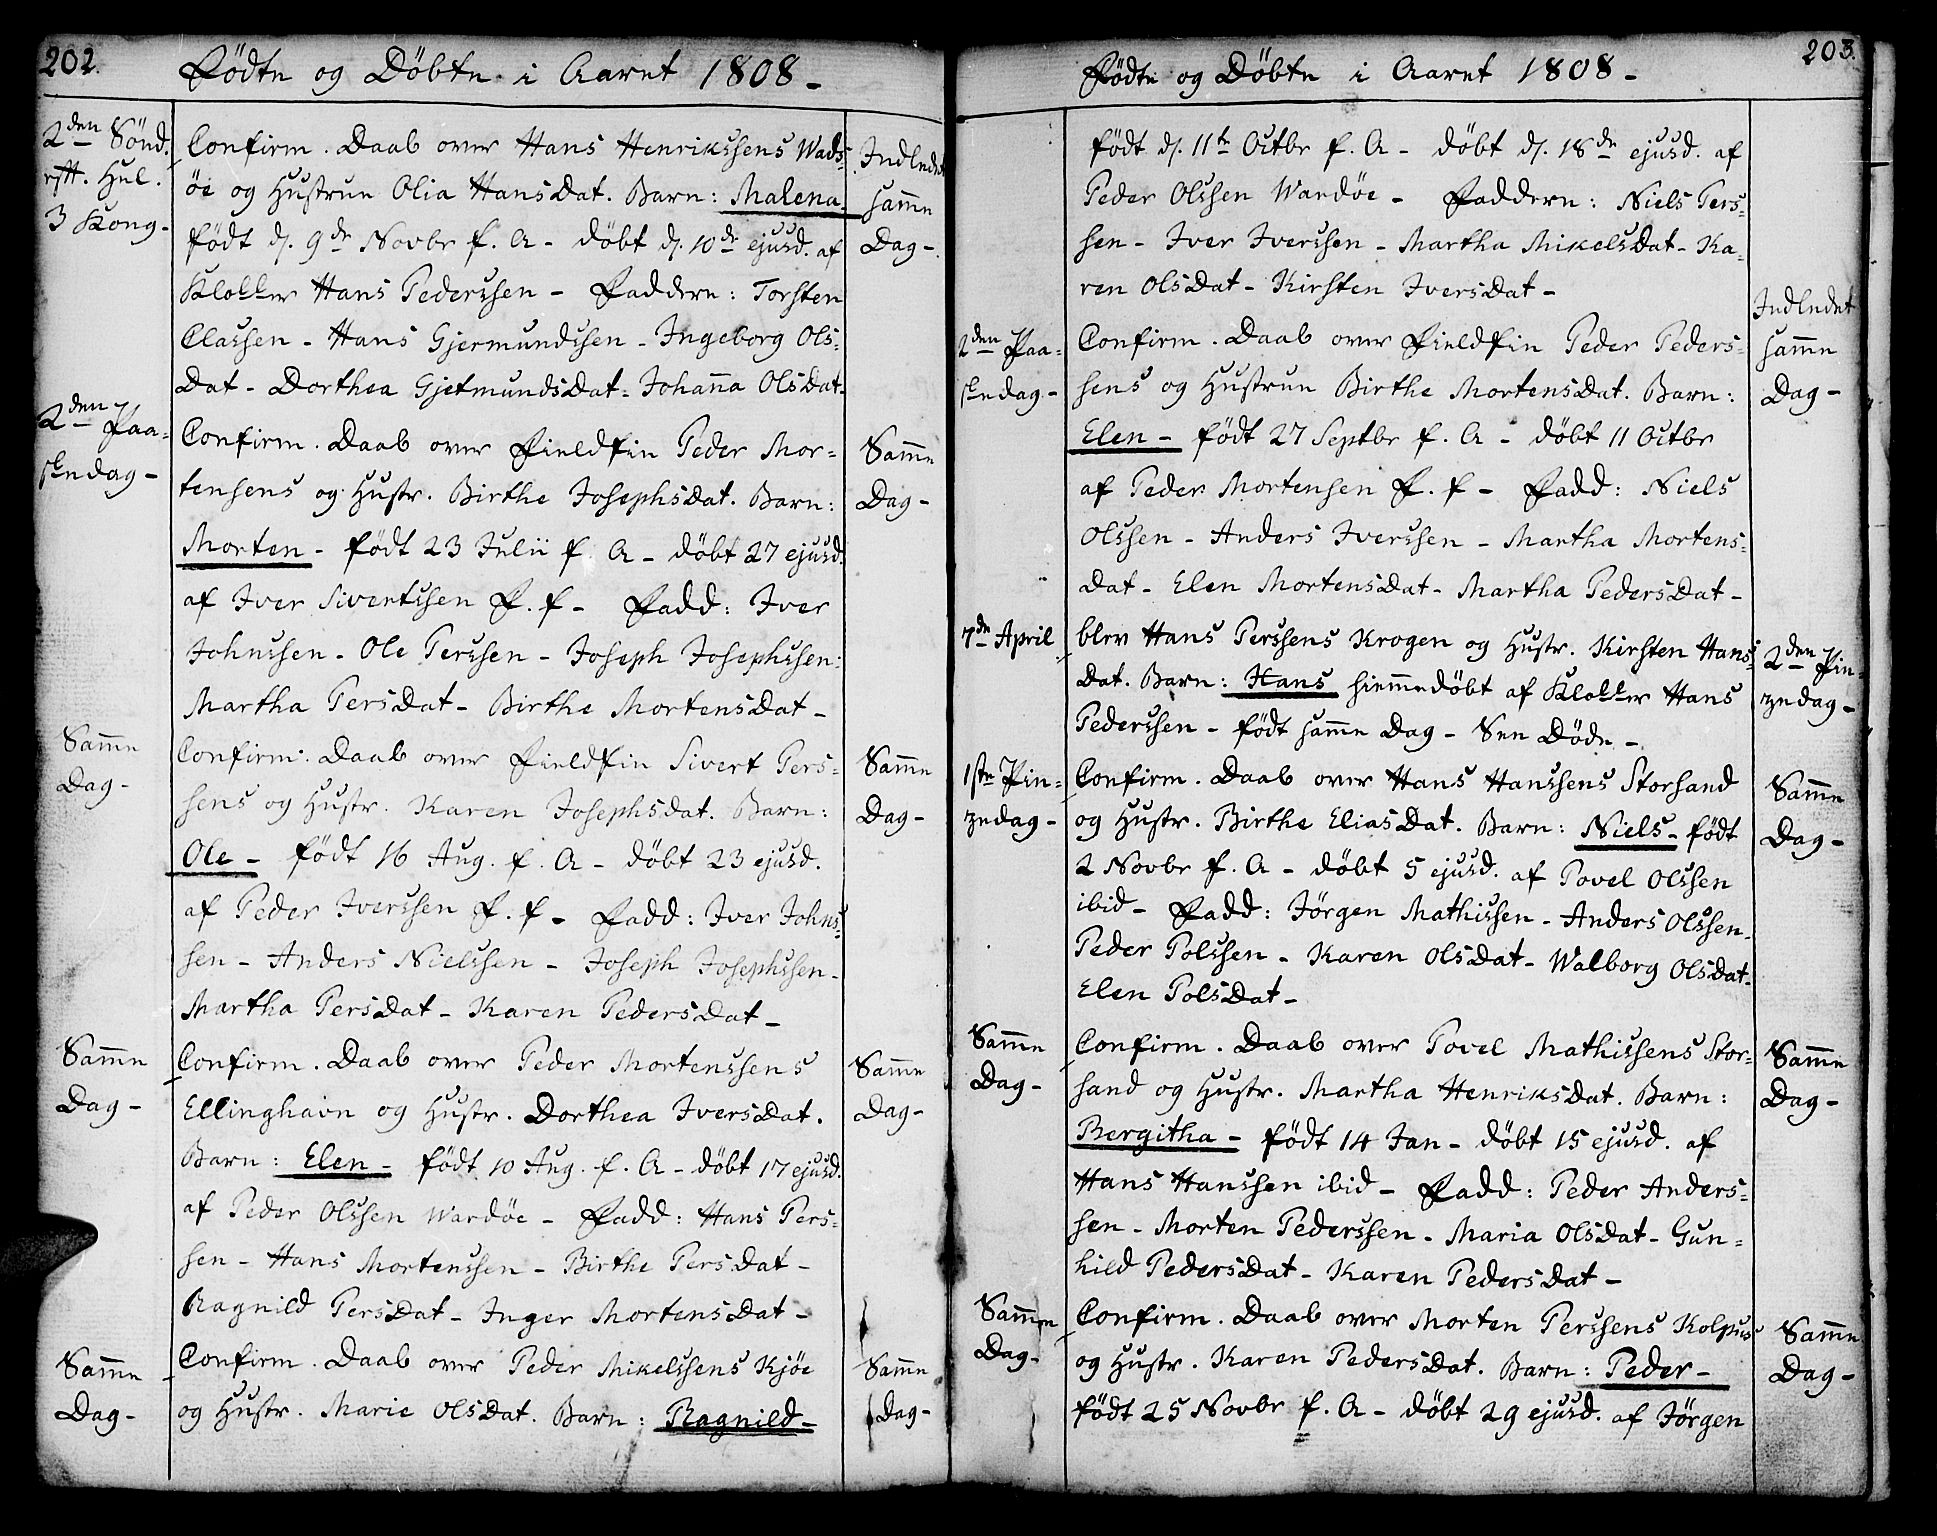 202.
Födte og Döbte i Aaret 1808 -
2den Sönd.
eft. Hel.
3 Kong-
Confirm. Daab over Hans Henrikssens Wads-
öe og Hustrue Olia HansDat. Barn: Malena
födt d. 9de Novbr f. A - döbt d. 10de ejusd. af
Klokker Hans Pederssen - Faddere: Torsten
Classen - Hans Gjermundssen - Ingeborg Ols-
Dat - Dorthea GjetmundsDat - Johanna OlsDat-
Indledet
samme
Dag -
2den Paa-
skedag -
Confirm. Daab over Fieldfin Peder Mor-
tensens og Hustr. Birthe JosephsDat. Barn:
Morten - födt 23 Julii f. A - döbt 27 ejusd.
af Iver Sivertssen F. f - Fadd: Iver
Johnssen - Ole Perssen - Joseph Josephssen
Martha PersDat - Birthe MortensDat -
Samme
Dag -
Samme
Dag -
Confirm. Daab over Fieldfin Sivert Pers-
sens og Hustr. Karen Josephsdat. Barn:
Ole - födt 16 Aug. f. A - döbt 23 ejusd.
af Peder Iverssen F. f - Fadd: Iver Johns-
sen - Anders Nielssen - Joseph Josephssen -
Martha PersDat - Karen PedersDat -
Samme
Dag -
Samme
Dag -
Confirm. Daab over Peder Mortenssens
Ellinghavn og Hustr. Dorthea IversDat.
Barn: Elen - födt 10 Aug. f. A - döbt 17 ejusd.
af Peder Olssen Wardöe - Fadd: Hans Pers-
sen - Hans Mortenssen - Birthe PersDat -
Ragnild PersDat - Inger MortensDat -
Samme
Dag -
Samme
Dag -
Confirm. Daab over Peder Mikelssens Kjöe
og Hustr. Marie OlsDat. Barn: Ragnild -
Samme
Dag -
203.
Födte og Döbte i Aaret 1808 -
födt d. 11te Octbr f. A - döbt d. 18de ejusd. af
Peder Olssen Wardöe - Faddere: Niels Pers-
sen - Iver Iverssen - Martha MikelsDat - Ka-
ren OlsDat - Kirsten IversDat -
2den Paa-
skedag -
Confirm. Daab over Fieldfin Peder Peders-
sens og Hustrue Birthe MortensDat. Barn:
Elen - födt 27 Septbr f. A - döbt 11 Octbr
af Peder Mortensen F. f - Fadd: Niels
Olssen - Anders Iverssen - Martha Mortens-
Dat - Elen MortensDat - Martha PedersDat -
Indledet
samme
Dag -
7de April
blev Hans Perssens Krogen og Hustr. Kirsten Hans-
Dat. Barn: Hans hiemmedöbt af Klokker Hans
Pederssen - födt samme Dag - See Döde -
2den Pin-
zedag -
1ste Pin-
zedag -
Confirm. Daab over Hans Hanssens Storsand
og Hustr. Birthe EliasDat. Barn: Niels - födt
2 Novbr f. A - döbt 5 ejusd. af Povel Olssen
ibid - Fadd: Jörgen Mathissen - Anders Olssen-
Peder Polssen - Karen OlsDat - Walborg OlsDat-
Elen PolsDat -
Samme
Dag -
Samme
Dag -
Confirm. Daab over Povel Mathissens Stor-
sand og Hustr. Martha HenriksDat. Barn:
Bergitha - födt 14 Jan - döbt 15 ejusd. af
Hans Hanssen ibid - Fadd: Peder Anders-
sen - Morten Pederssen - Maria OlsDat - Gun-
hild PedersDat - Karen PedersDat -
Samme
Dag -
Samme
Dag -
Confirm. Daab over Morten Perssens
og Hustr. Karen PedersDat. Barn: Peder -
födt 25 Novbr f. A - döbt 29 ejusd. af Jörgen
Samme
Dag -